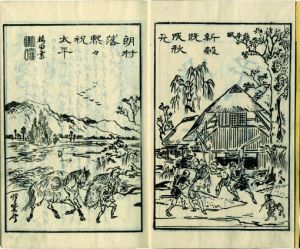 新穀
既
成秋
朗村
落
熙々
祝
太平